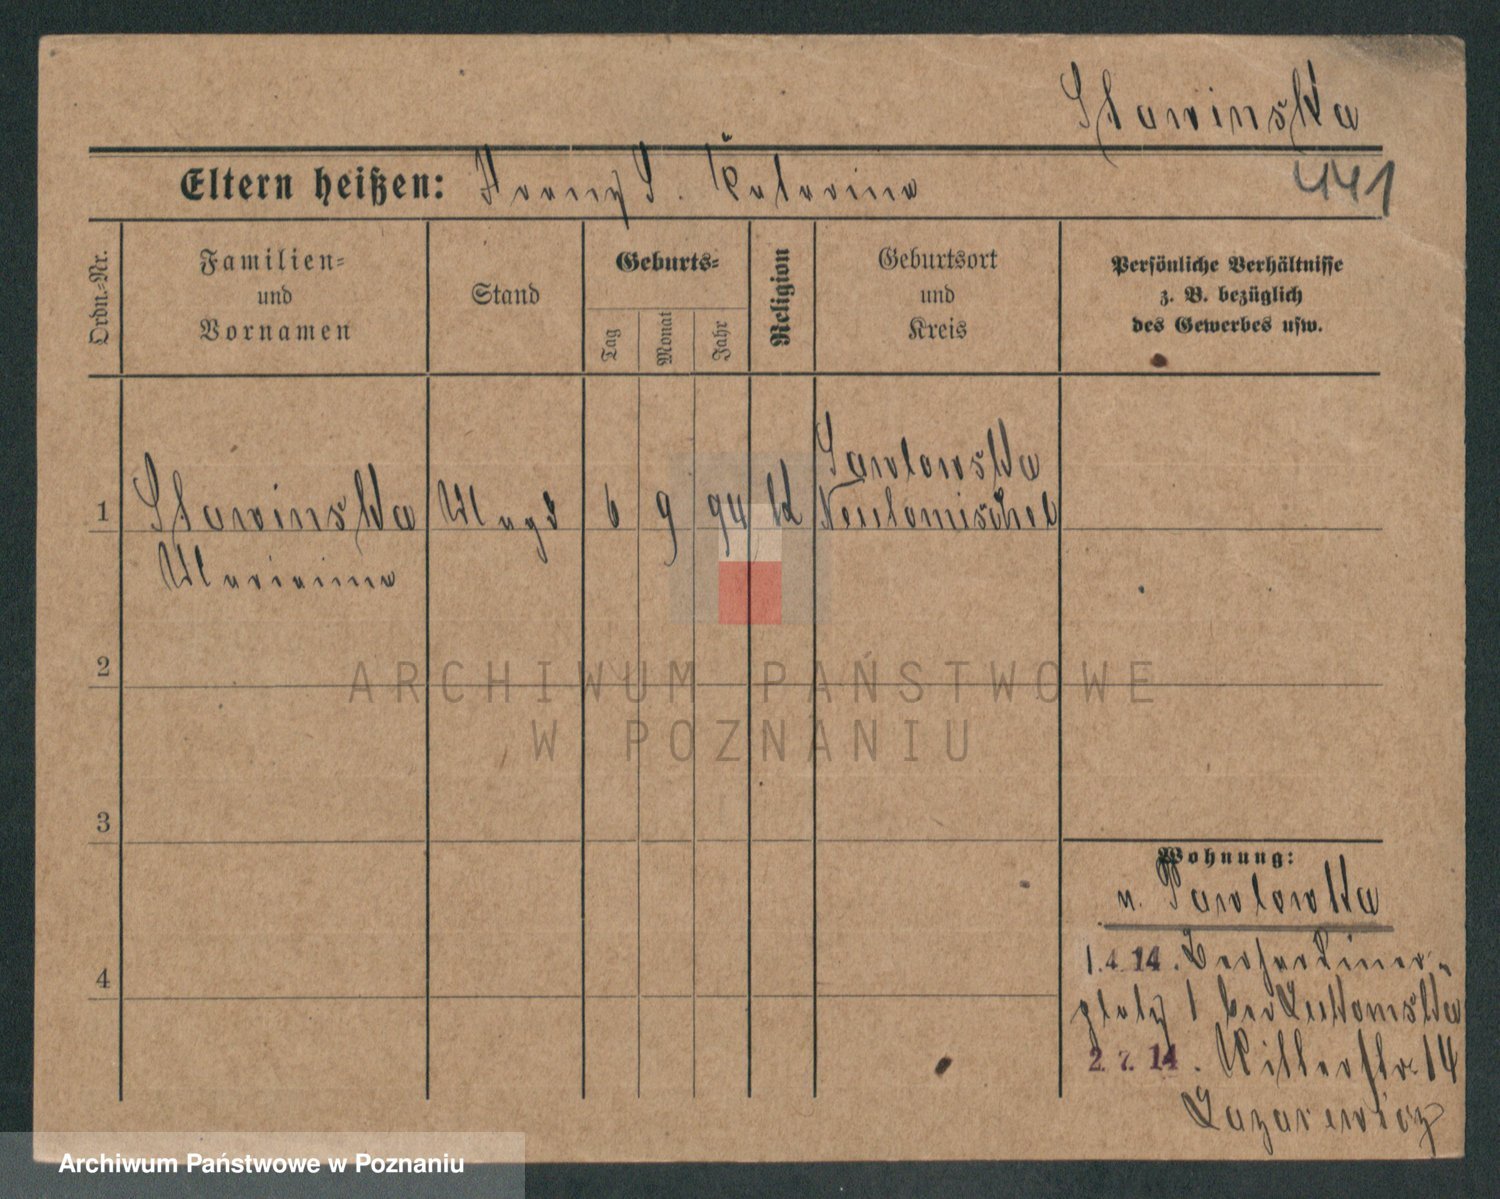 Slawinska
441
Eltern heißen: Franz S. Katarina
Ordn.-Nr.
Familien-
und
Vornamen
Stand
Geburts-
Tag
Monat
Jahr
Religion
Geburtsort
und
Kreis
Persönliche Verhältnisse
z. B. bezüglich
des Gewerbes usw.
1 Slawinska Magd 6 9 94 k Pawlowska
Neutomischel
Marianna
2
3
4
ARCHIWUM PAŃSTWOWE
W POZNANIU
Wohnung:
n. Pawlowka
1.4.14. Bernardiner-
platz 1 bei Lutkomska
2.7.14. Ritterstr. 14
Lazarewicz
Archiwum Państwowe w Poznaniu